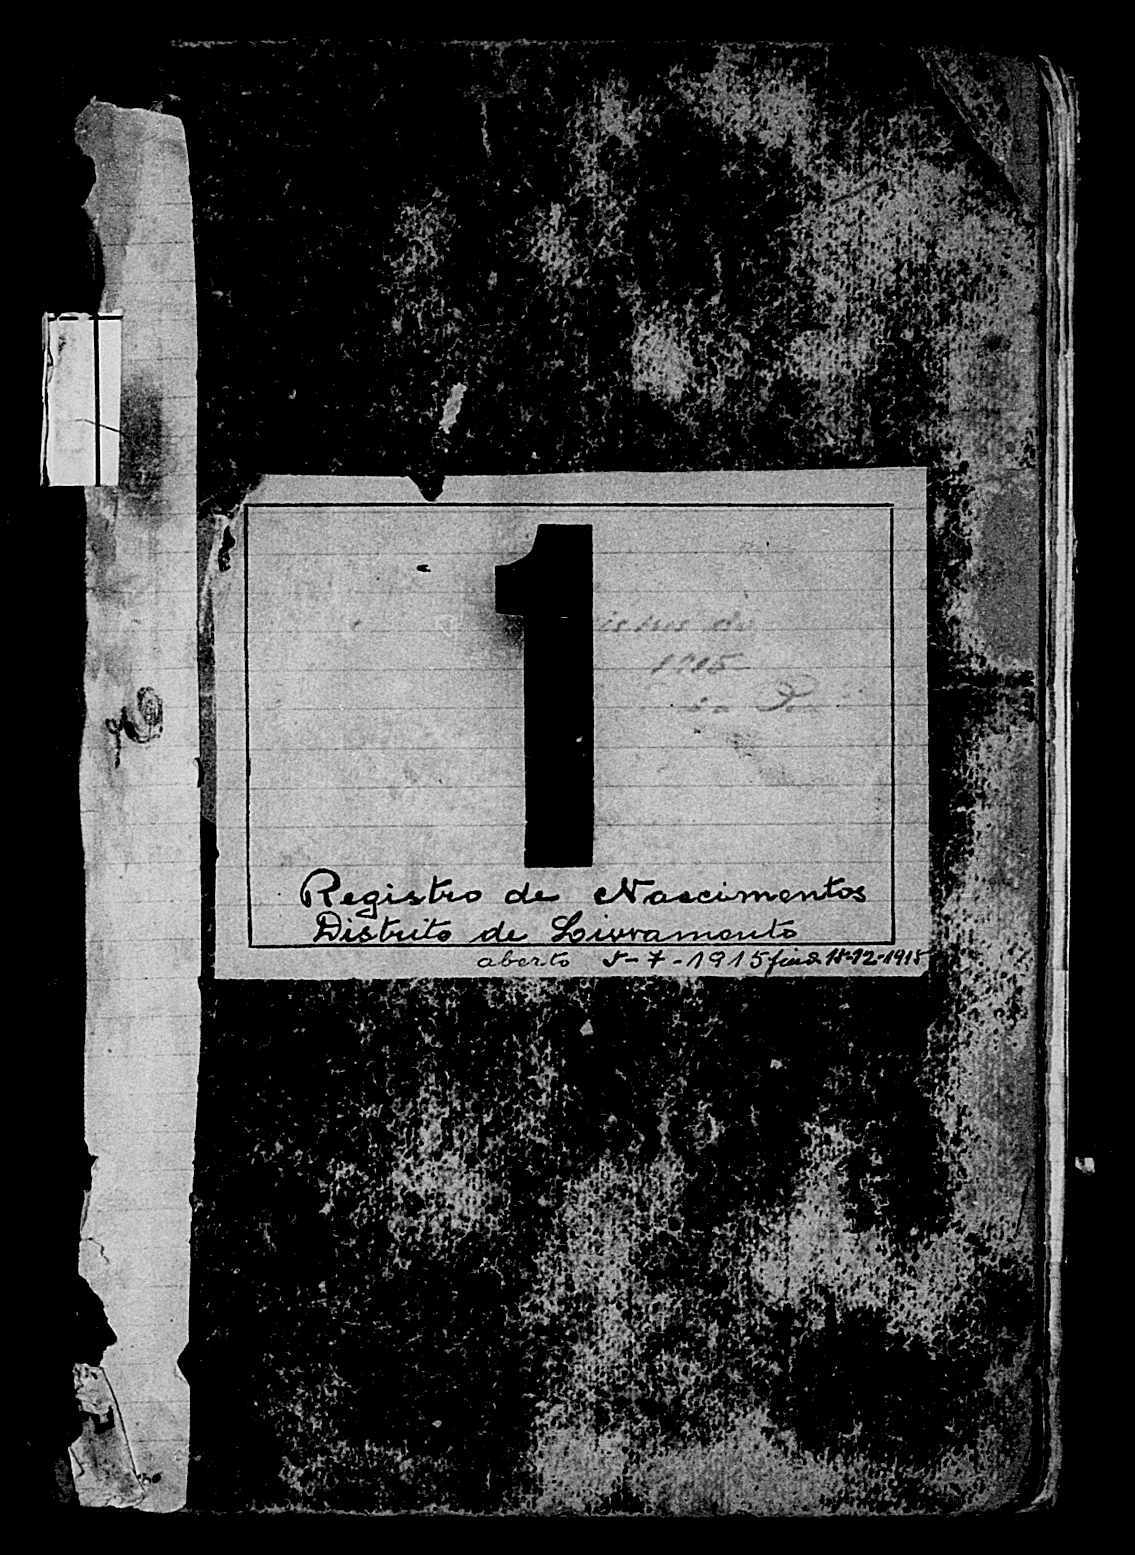 1
de
1915
Registro de Nascimentos
Distrito de Livramento
aberto 5-7-1915 find 18-12-1915